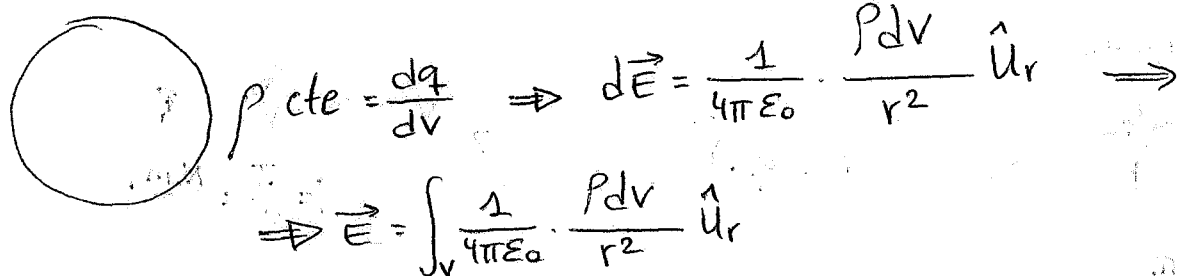 ρ cte = dq/dv ⇒ dE⃗ = 1/4πε₀ · ρdv/r² ûr ⇒
⇒ E⃗ = ∫v 1/4πε₀ · ρdv/r² ûr